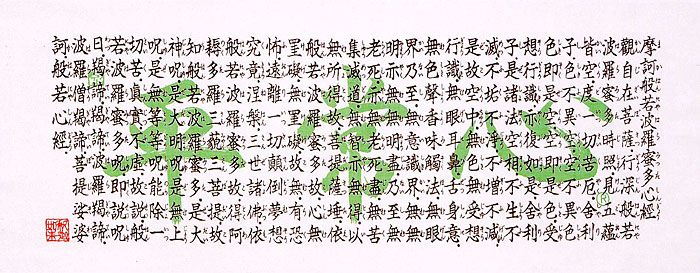 摩訶般若波羅蜜多心經
觀自在菩薩行深般若
波羅蜜多時照見五蘊
皆空度一切苦厄舎利
子色不異空空不異色
色即是空空即是色受
想行識亦復如是舎利
子是諸法空相不生不
滅不垢不淨不增不減
是故空中無色無受想
行識無眼耳鼻舌身意
無色聲香味觸法無眼
界乃至無意識界無無
明亦無無明盡乃至無
老死亦無老死盡無苦
集滅道無智亦無得以
無所得故菩提薩埵依
般若波羅蜜多故心無
罣礙無罣礙故無有恐
怖遠離一切顛倒夢想
究竟涅槃三世諸佛依
般若波羅蜜多故得阿
耨多羅三藐三菩提故
知般若波羅蜜多是大
神呪是大明呪是無上
呪是無等等呪能除一
切苦真實不虛故説般
若波羅蜜多呪即説呪
曰羯諦羯諦波羅羯諦
波羅僧羯諦菩提娑婆
訶般若心經
平常心